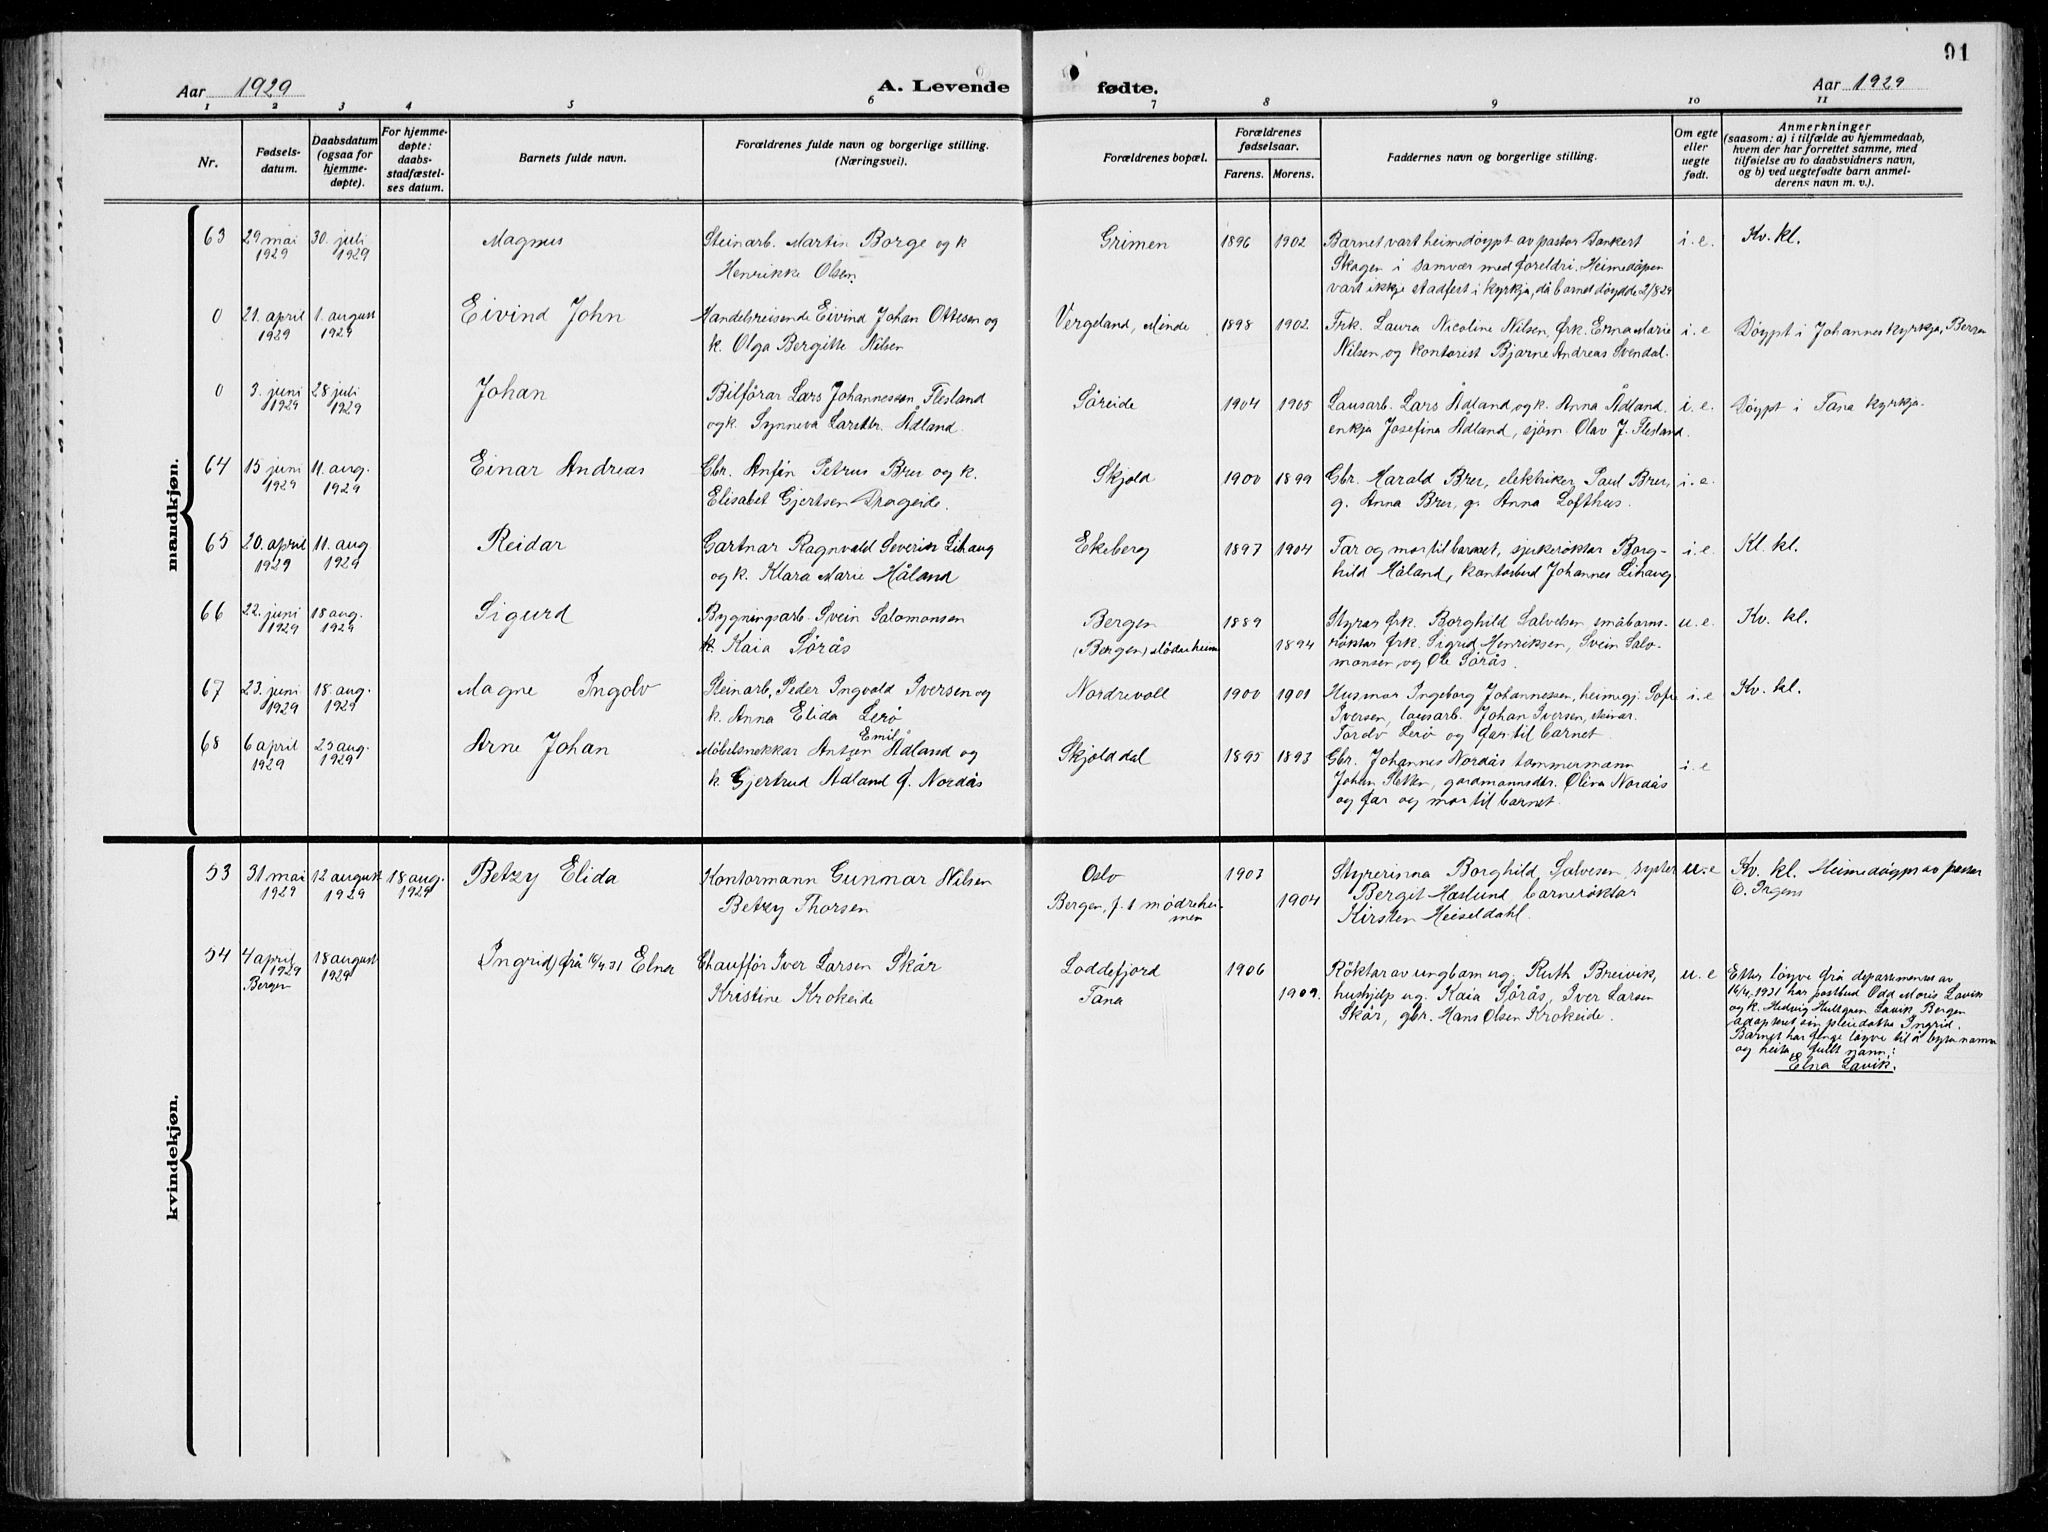 91
Aar 1929
A. Levende fødte.
Aar 1929
1 2 3 4 5 6 7 8 9 10 11
Nr.
Fødsels-
datum.
Daabsdatum
(ogsaa for
hjemme-
døpte).
For hjemme-
døpte:
daabs-
stadfæstel-
ses datum.
Barnets fulde navn.
Forældrenes fulde navn og borgerlige stilling.
(Næringsvei).
Forældrenes bopæl.
Forældrenes
fødselsaar.
Farens. Morens.
Faddernes navn og borgerlige stilling.
Om egte
eller
uegte
født.
Anmerkninger
(saasom: a) i tilfælde av hjemmedaab,
hvem der har forrettet samme, med
tilføielse av to daabsvidners navn,
og b) ved uegtefødte barn anmel-
derens navn m. v.).
mandkjøn.
63
29 mai
1929
30. juli
1929
Magnus
Steinarb. Martin Borge og k
Henrikke Olsen.
Grimen
1896
1902
Barnet vart heimedøypt av pastor Tankert
Skagen i samvær med foreldri. Heimedåpen
vart ikkje stadfest i kyrkja, då barnet døydde 2/8 29
i. e.
Kv. kl.
0
21. april
1929
1. august
1929
Eivind John
Handelsreisende Eivind Johan Ottesen og
k. Olga Bergitte Nilsen
Vergeland, Minde
1898
1902.
Frk. Laura Nicoline Nilsen, frk. Erna Marie
Nilsen, og kontorist Bjarne Andreas Svendal.
i. e
Døypt i Johannes kyrkja, Bergen
0
3. juni
1929
28 juli
1929
Johan
Bilførar Lars Johannessen Flesland
og k. Synneva Larsdtr. Ådland.
Søreide
1904
1905
Lausarb. Lars Ådland, og k. Anna Ådland,
enkja Josefina Ådland, sjöm. Olav J. Flesland.
i. e.
Døypt i Fana kyrkja.
64
15 juni
1929
11. aug.
1929
Einar Andreas
Gbr. Anfin Petrus Brer og k.
Elisabet Gjertsen Drageide.
Skjold
1900
1899
Gbr. Harald Brer, elektriker Paul Brer,
g. Anna Brer, g. Anna Lofthus.
i. e.
65
20. april
1929
11. aug
1929
Reidar
Gartnar Ragnvald Severin Lihaug
og k. Klara Marie Håland
Ekeberg
1897
1904
Far og mor til barnet, sjukerøktar Borg-
hild Håland, kontorbud Johannes Lihaug.
i. e.
Kl. kl.
66
22. juni
1929
18 aug.
1929
Sigurd
Bygningsarb. Svein Salomonsen
k. Kaia Sørås
Bergen
(Bergen) Mødreheim
1889
1894
Styrar frk. Borghild Salvesen, småbarns-
røktar frk. Sigrid Henriksen, Svein Salo-
monsen, og Ole Sørås.
u. e.
Kv. kl.
67
23. juni
1929
18. aug.
1929
Magne Ingolv
Steinarb. Peder Ingvald Iversen og
k. Anna Elida Lerø
Nordrevoll
1900
1901
Husmor Ingeborg Johannessen, heimegj. Sofie
Iversen, lausarb. Johan Iversen,
Tordv Lerø og far til barnet.
i. e
Kv. kl.
68
6 april
1929
25 aug.
1929
Arne Johan
Emil
Møbelsnekkar Anton Ådland og
k. Gjertrud Ådland f. Nordås
Skjolddal
1895
1893
Gbr. Johannes Nordås tømmermann
Johan Sletten, gardmannsdtr. Oliva Nordås
og far og mor til barnet.
i. e
kvindekjøn.
53
31 mai
1929
12 august
1929
18 aug.
1929
Betzy Elida
Kontormann Gunnar Nilsen
Betzy Thorsen
Oslo
Bergen, f. t mødrehei-
men
1903
1904
Styrerinna Borghild Salvesen, syster
Bergit Haslund barnerøktar
Kirsten Heiseldahl.
u. e
Kv. kl. Heimedøypt av pastor
C. Irgens
54
4 april
1929
Bergen
18 august
1929
Ingrid) frå 16/4 31 Elna
Chauffør Iver Larsen Skår
Kristine Krokeide
Loddefjord
Fana
1906
1909.
Røktar av ungbarn ug. Ruth Breivik,
hushjelp ug. Kaia Sørås, Iver Larsen
Skår, gbr. Hans Olsen Krokeide.
u. e
Etter løyve frå departementet av
16/4. 1931 har postbud Odd Moris Lavik
og k. Hedvig Hultgren Lavik, Bergen
adoptert sin pleiedatter Ingrid.
Barnet har fenge løyve til å byta namn
og heita fullt namn:
Elna Lavik.